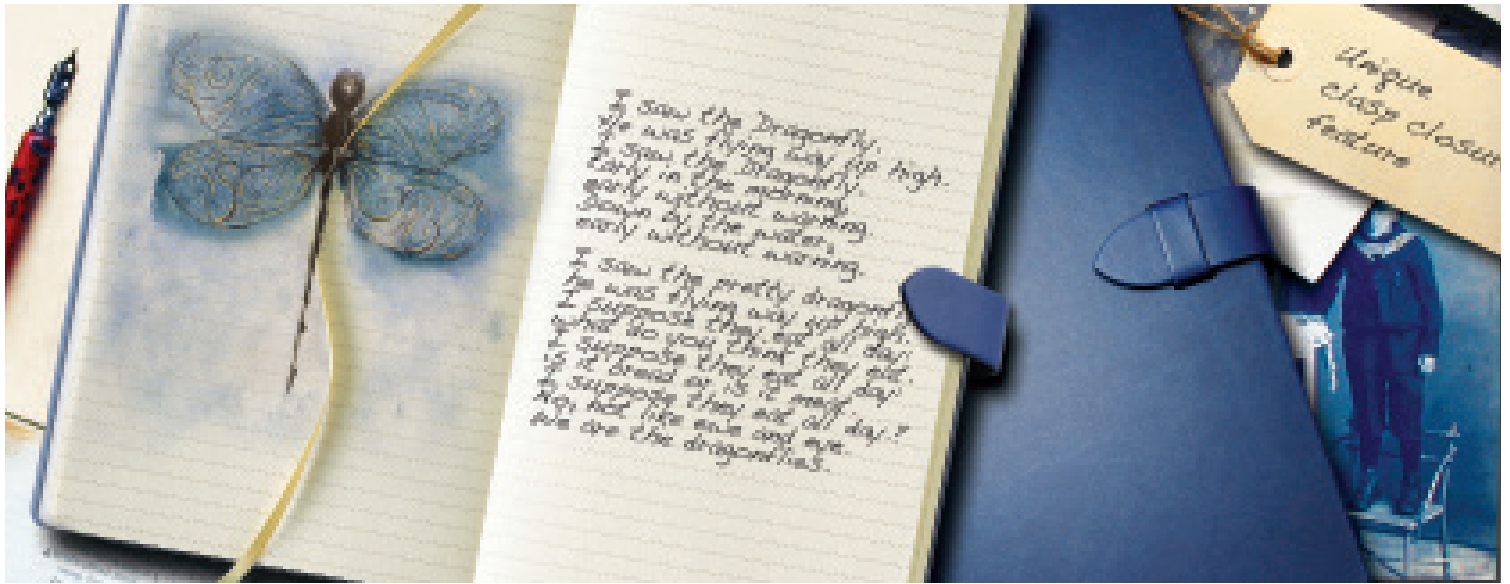 I saw the Dragonfly.
He was flying way up high.
I saw the Dragonfly.
Early in the morning,
early without warning.
Down by the water,
early without warning.
I saw the pretty dragonfl
he was flying way high.
I suppose they eat all day.
what do you think they eat.
I suppose they eat all day
is it bread or is it meat.
I suppose they eat all day?
No, not like ewe and eye.
we are the dragonflies.
Unique
clasp closur
feature